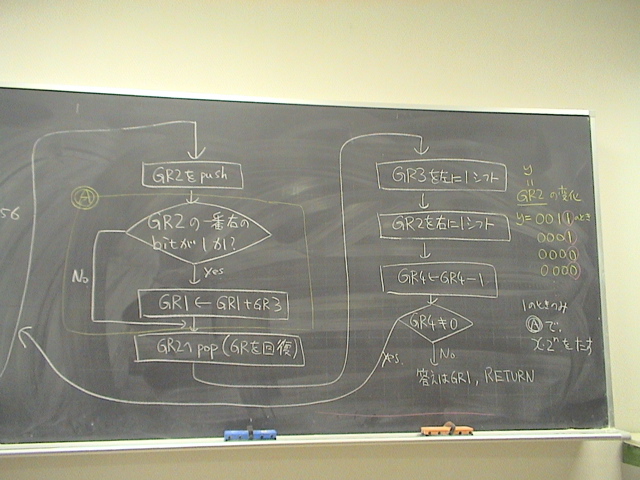 56
GR2をpush
A
GR2の一番右の
bitが1か?
No
yes
GR1 ← GR1+GR3
GR2へpop(GRを回復)
GR3を左に1シフト
GR2を右に1シフト
GR4←GR4-1
GR4≠0
yes.
No
答えはGR1, RETURN
y
=
GR2 の変化
y=0011のとき
0001
0000
0000
1のときのみ
Aで、
x・2ⁿをたす